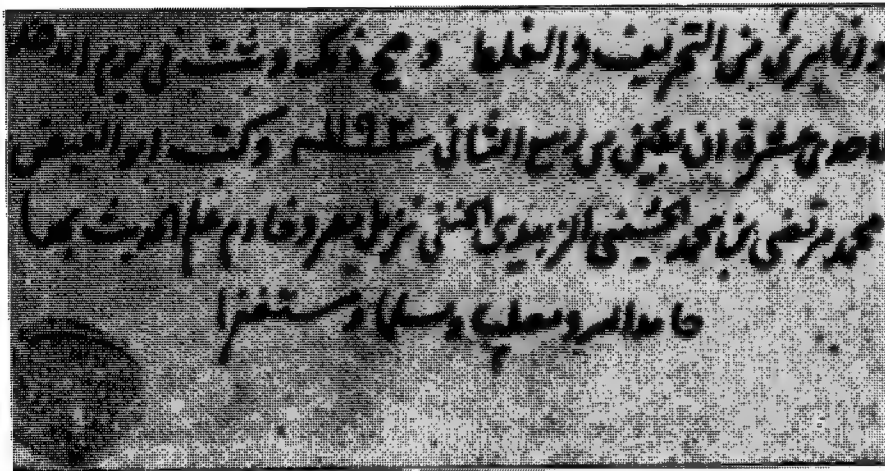 وانا برئ من التحريف والغلط وصح ذلك وثبت في يوم الاحد
لاحدى عشرة ان بقين من ربيع الثاني سنة ١١٩٣ وكتب ابو الفيض
محمد مرتضى بن محمد الحسيني الزبيدي الحنفي نزيل مصر وخادم علم الحديث بها
حامدا لله ومصليا ومسلما ومستغفرا